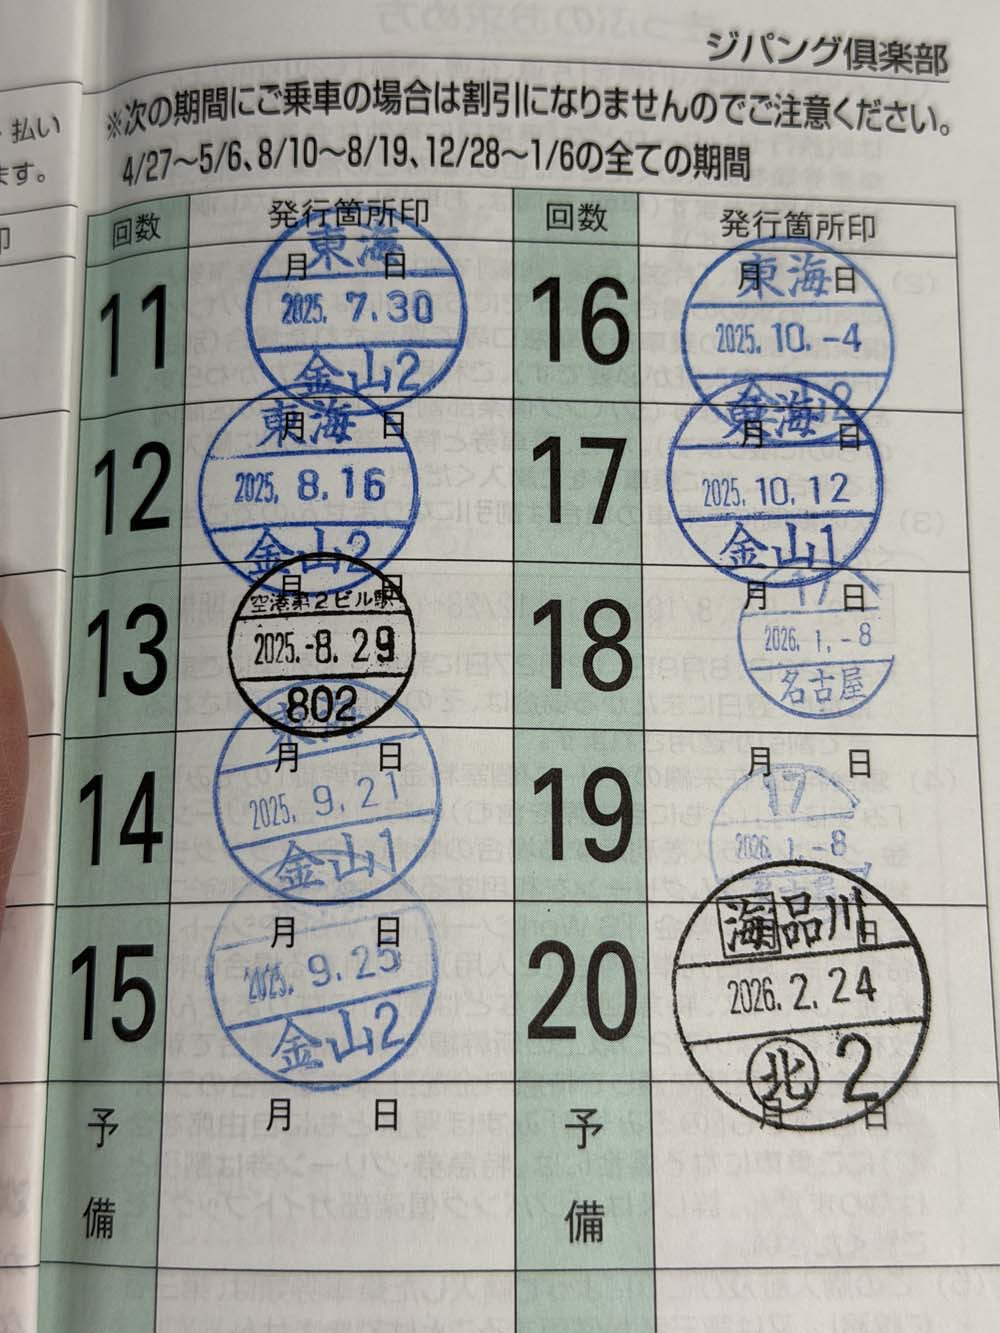 ジパング倶楽部
※次の期間にご乗車の場合は割引になりませんのでご注意ください。
4/27～5/6、8/10～8/19、12/28～1/6の全ての期間
・払い
ます。
印
回数 発行箇所印 回数 発行箇所印
11
東海
月 日
2025. 7.30
金山2
16
東海
月 日
2025. 10. -4
12
東海
月 日
2025. 8.16
金山2
17
東海
月 日
2025. 10.12
金山1
13
月 日
空港第2ビル駅
2025. -8. 29
802
18
月 日
17
2026. 1. -8
名古屋
14
東海
月 日
2025. 9.21
金山1
19
月 日
17
2026. 1. -8
名古屋
15
月 日
2025. 9.25
金山2
20
海 品川
日
2026. 2. 24
北 2
予備
月 日
予備
月 日